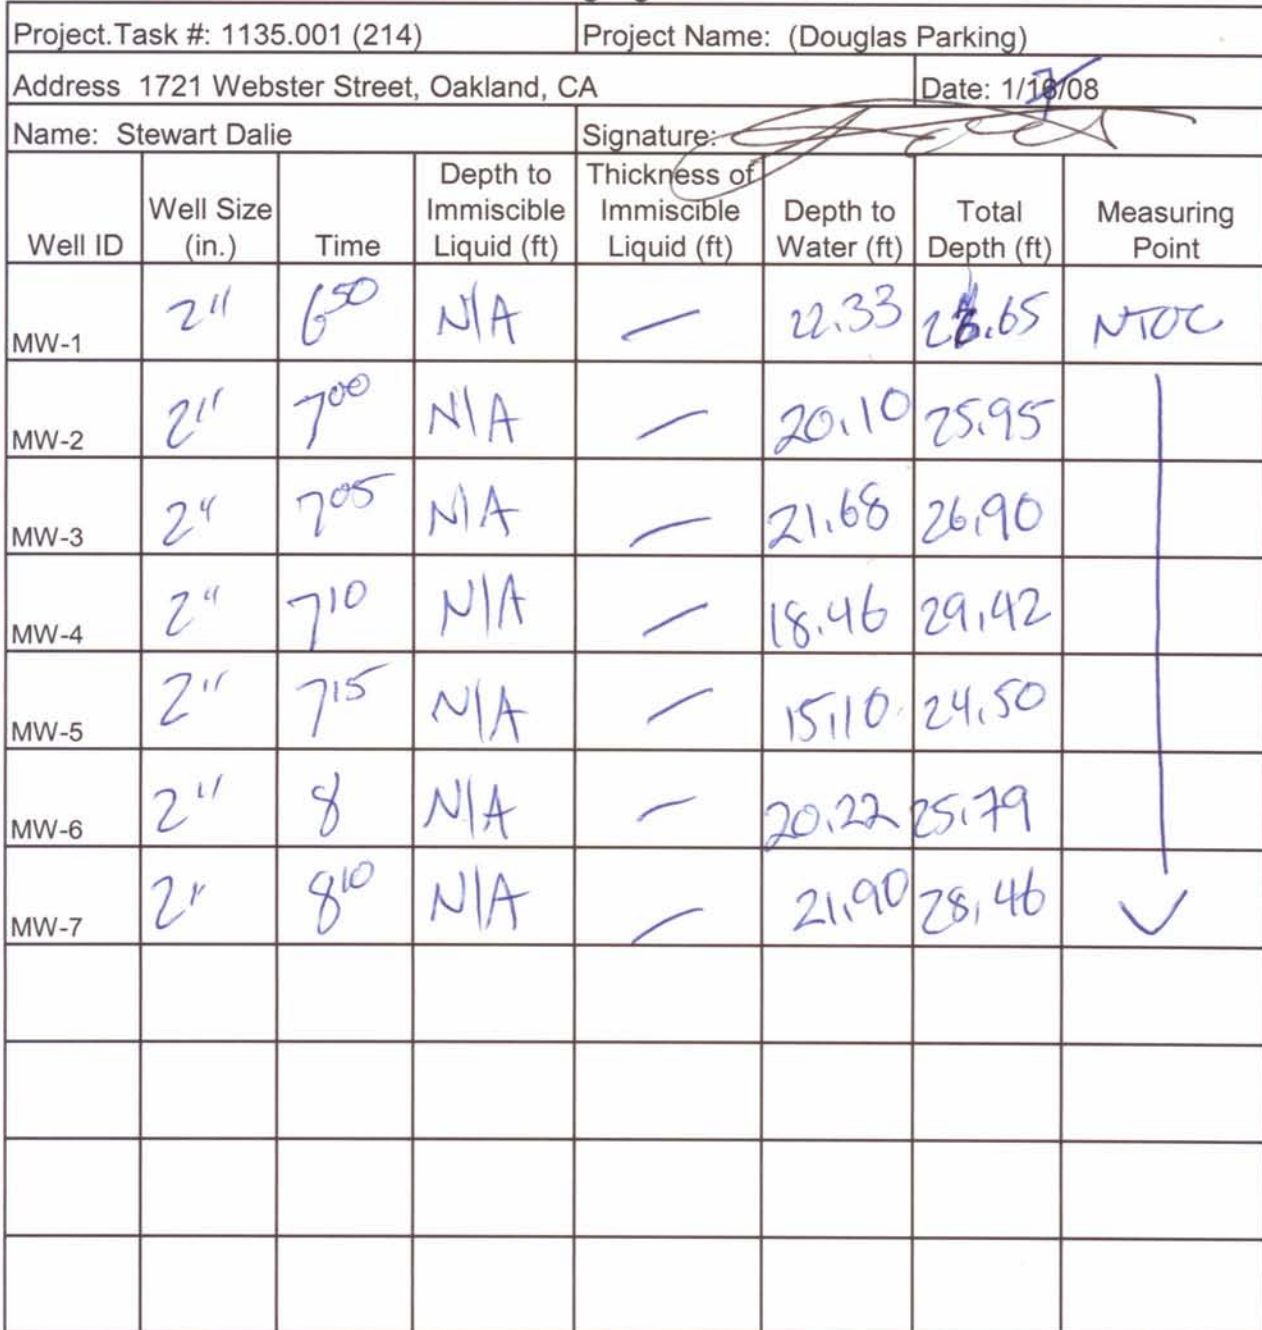 Project.Task #: 1135.001 (214) Project Name: (Douglas Parking)
Address 1721 Webster Street, Oakland, CA Date: 1/17/08
Name: Stewart Dalie Signature:
Well ID Well Size (in.) Time Depth to Immiscible Liquid (ft) Thickness of Immiscible Liquid (ft) Depth to Water (ft) Total Depth (ft) Measuring Point
MW-1 2" 650 N/A — 22.33 NTOC
MW-2 2" 700 N/A — 20.10 25.95
MW-3 2" 705 N/A — 21.68 26.90
MW-4 2" 710 N/A — 18.46 29.42
MW-5 2" 715 N/A — 15.10 24.50
MW-6 2" 8 N/A — 20.22 25.79
MW-7 2" 810 N/A — 21.90 28.46